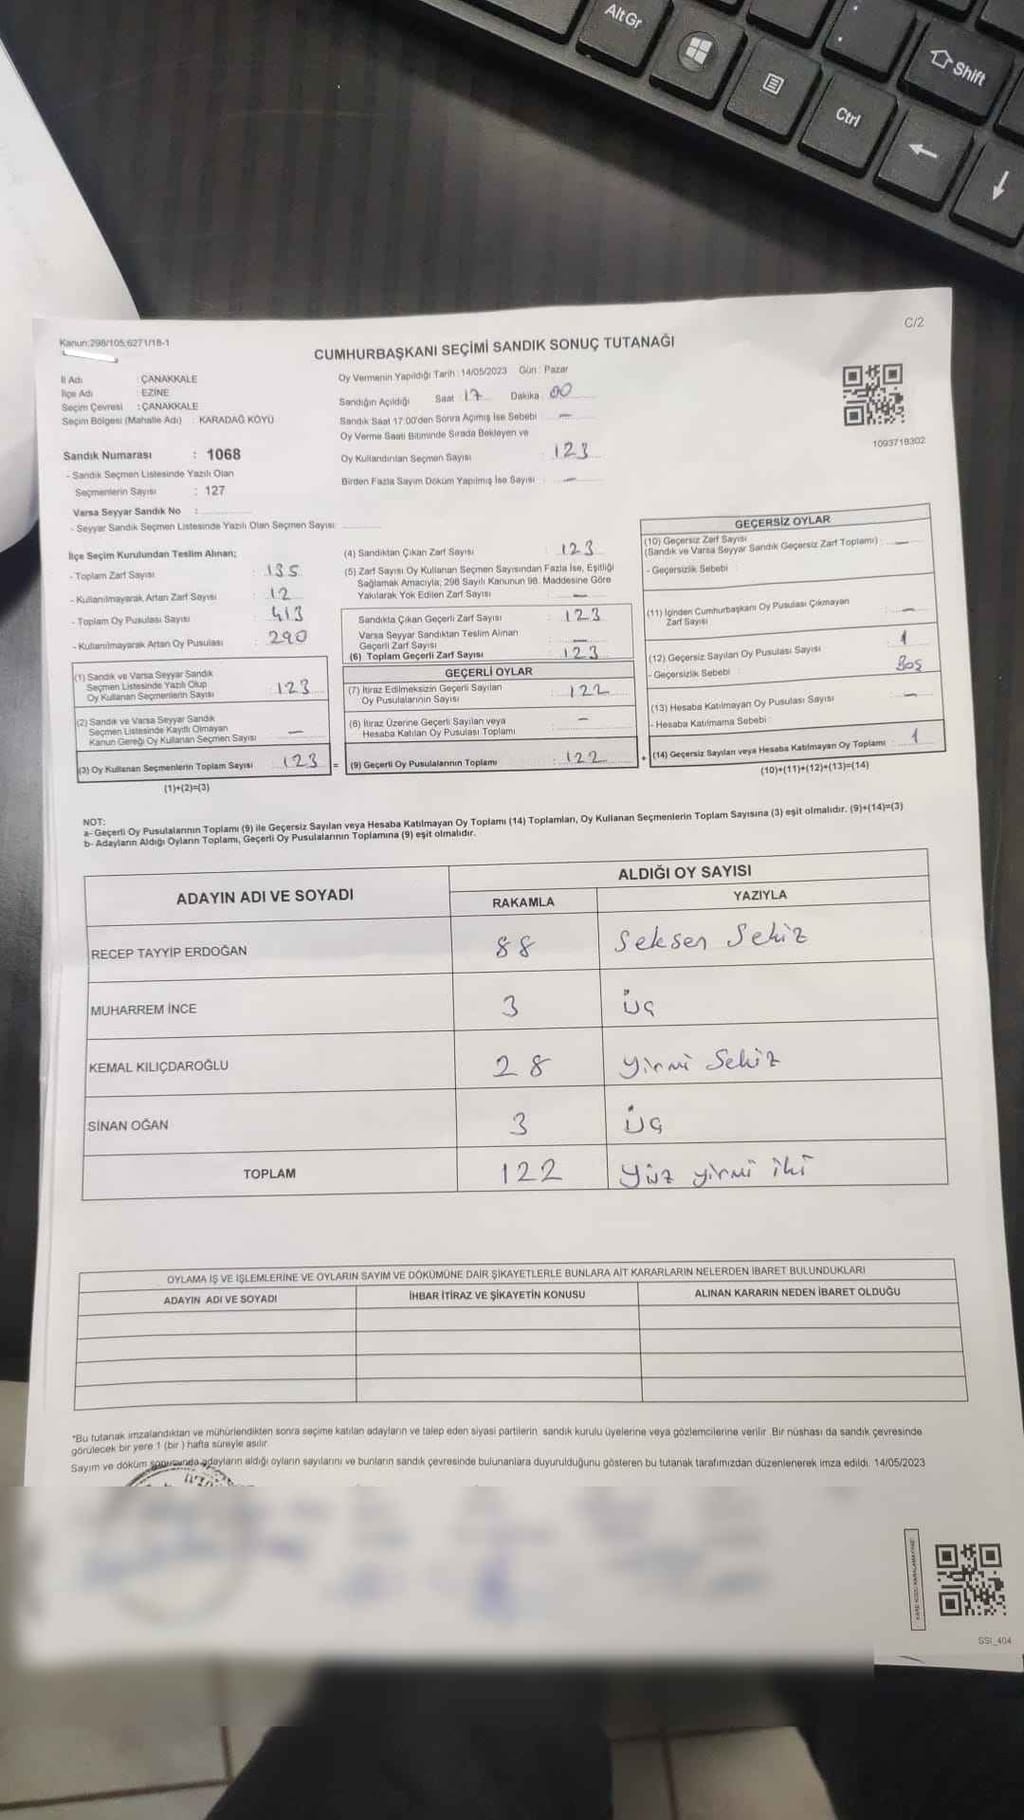 Alt Gr
Shift
Ctrl
C/2
Kanun:298/105;6271/18-1
CUMHURBAŞKANI SEÇİMİ SANDIK SONUÇ TUTANAĞI
İl Adı : ÇANAKKALE
İlçe Adı : EZİNE
Seçim Çevresi : ÇANAKKALE
Seçim Bölgesi (Mahalle Adı) : KARADAĞ KÖYÜ
Sandık Numarası : 1068
- Sandık Seçmen Listesinde Yazılı Olan
Seçmenlerin Sayısı : 127
Varsa Seyyar Sandık No :
- Seyyar Sandık Seçmen Listesinde Yazılı Olan Seçmen Sayısı:
Oy Vermenin Yapıldığı Tarih : 14/05/2023 Gün : Pazar
Sandığın Açıldığı Saat 17 Dakika 00
Sandık Saat 17:00'den Sonra Açımış İse Sebebi —
Oy Verme Saati Bitiminde Sırada Bekleyen ve
Oy Kullandırılan Seçmen Sayısı : 123
Birden Fazla Sayım Döküm Yapılmış İse Sayısı : —
1093718302
İlçe Seçim Kurulundan Teslim Alınan;
- Toplam Zarf Sayısı : 135
- Kullanılmayarak Artan Zarf Sayısı : 12
- Toplam Oy Pusulası Sayısı : 413
- Kullanılmayarak Artan Oy Pusulası : 290
(1) Sandık ve Varsa Seyyar Sandık
Seçmen Listesinde Yazılı Olup
Oy Kullanan Seçmenlerin Sayısı : 123
(2) Sandık ve Varsa Seyyar Sandık
Seçmen Listesinde Kayıtlı Olmayan
Kanun Gereği Oy Kullanan Seçmen Sayısı : —
(3) Oy Kullanan Seçmenlerin Toplam Sayısı : 123
(1)+(2)=(3)
(4) Sandıktan Çıkan Zarf Sayısı : 123
(5) Zarf Sayısı Oy Kullanan Seçmen Sayısından Fazla İse, Eşitliği
Sağlamak Amacıyla; 298 Sayılı Kanunun 98. Maddesine Göre
Yakılarak Yok Edilen Zarf Sayısı : —
Sandıkta Çıkan Geçerli Zarf Sayısı : 123
Varsa Seyyar Sandıktan Teslim Alınan
Geçerli Zarf Sayısı : —
(6) Toplam Geçerli Zarf Sayısı : 123
GEÇERLİ OYLAR
(7) İtiraz Edilmeksizin Geçerli Sayılan
Oy Pusulalarının Sayısı : 122
(8) İtiraz Üzerine Geçerli Sayılan veya
Hesaba Katılan Oy Pusulası Toplamı : —
= (9) Geçerli Oy Pusulalarının Toplamı : 122
GEÇERSİZ OYLAR
(10) Geçersiz Zarf Sayısı
(Sandık ve Varsa Seyyar Sandık Geçersiz Zarf Toplamı) : —
- Geçersizlik Sebebi :
(11) İçinden Cumhurbaşkanı Oy Pusulası Çıkmayan
Zarf Sayısı : —
(12) Geçersiz Sayılan Oy Pusulası Sayısı : 1
- Geçersizlik Sebebi : Boş
(13) Hesaba Katılmayan Oy Pusulası Sayısı : —
- Hesaba Katılmama Sebebi :
+ (14) Geçersiz Sayılan veya Hesaba Katılmayan Oy Toplamı : 1
(10)+(11)+(12)+(13)=(14)
NOT:
a- Geçerli Oy Pusulalarının Toplamı (9) ile Geçersiz Sayılan veya Hesaba Katılmayan Oy Toplamı (14) Toplamları, Oy Kullanan Seçmenlerin Toplam Sayısına (3) eşit olmalıdır. (9)+(14)=(3)
b- Adayların Aldığı Oyların Toplamı, Geçerli Oy Pusulalarının Toplamına (9) eşit olmalıdır.
ADAYIN ADI VE SOYADI
ALDIĞI OY SAYISI
RAKAMLA YAZIYLA
RECEP TAYYİP ERDOĞAN 88 Seksen Sekiz
MUHARREM İNCE 3 Üç
KEMAL KILIÇDAROĞLU 28 Yirmi Sekiz
SİNAN OĞAN 3 Üç
TOPLAM 122 Yüz yirmi iki
OYLAMA İŞ VE İŞLEMLERİNE VE OYLARIN SAYIM VE DÖKÜMÜNE DAİR ŞİKAYETLERLE BUNLARA AİT KARARLARIN NELERDEN İBARET BULUNDUKLARI
ADAYIN ADI VE SOYADI İHBAR İTİRAZ VE ŞİKAYETİN KONUSU ALINAN KARARIN NEDEN İBARET OLDUĞU
"Bu tutanak imzalandıktan ve mühürlendikten sonra seçime katılan adayların ve talep eden siyasi partilerin sandık kurulu üyelerine veya gözlemcilerine verilir. Bir nüshası da sandık çevresinde
görülecek bir yere 1 (bir) hafta süreyle asılır.
Sayım ve döküm sonucunda adayların aldığı oyların sayılarını ve bunların sandık çevresinde bulunanlara duyurulduğunu gösteren bu tutanak tarafımızdan düzenlenerek imza edildi. 14/05/2023
SSI_404